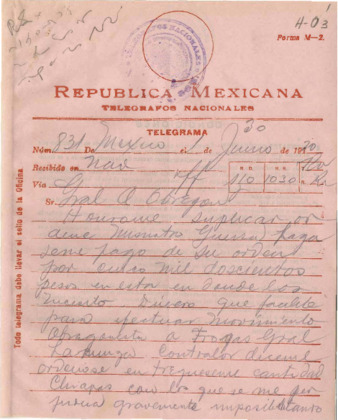 4-03
Forma M-2.
TELEGRAFOS NACIONALES
REPUBLICA MEXICANA
TELEGRAFOS NACIONALES
TELEGRAMA
Núm. 831 De Mexico el 30 de Junio de 1920
Recibido en Nav
Via
Sr. Gral A Obregon
Honrome suplicar or
dene Monetro Guerra haga
seme pago de su orden
por cinco mil doscientos
pesos en esta en donde los
necesito Dinero que facilité
para efectuar movimiento
a Tropas Gral
Contralor diceme
ordenose en represente cantidad
Chiapas con lo que se me per
judica gravemente imposibilitanto
Todo telegrama debe llevar el sello de la Oficina